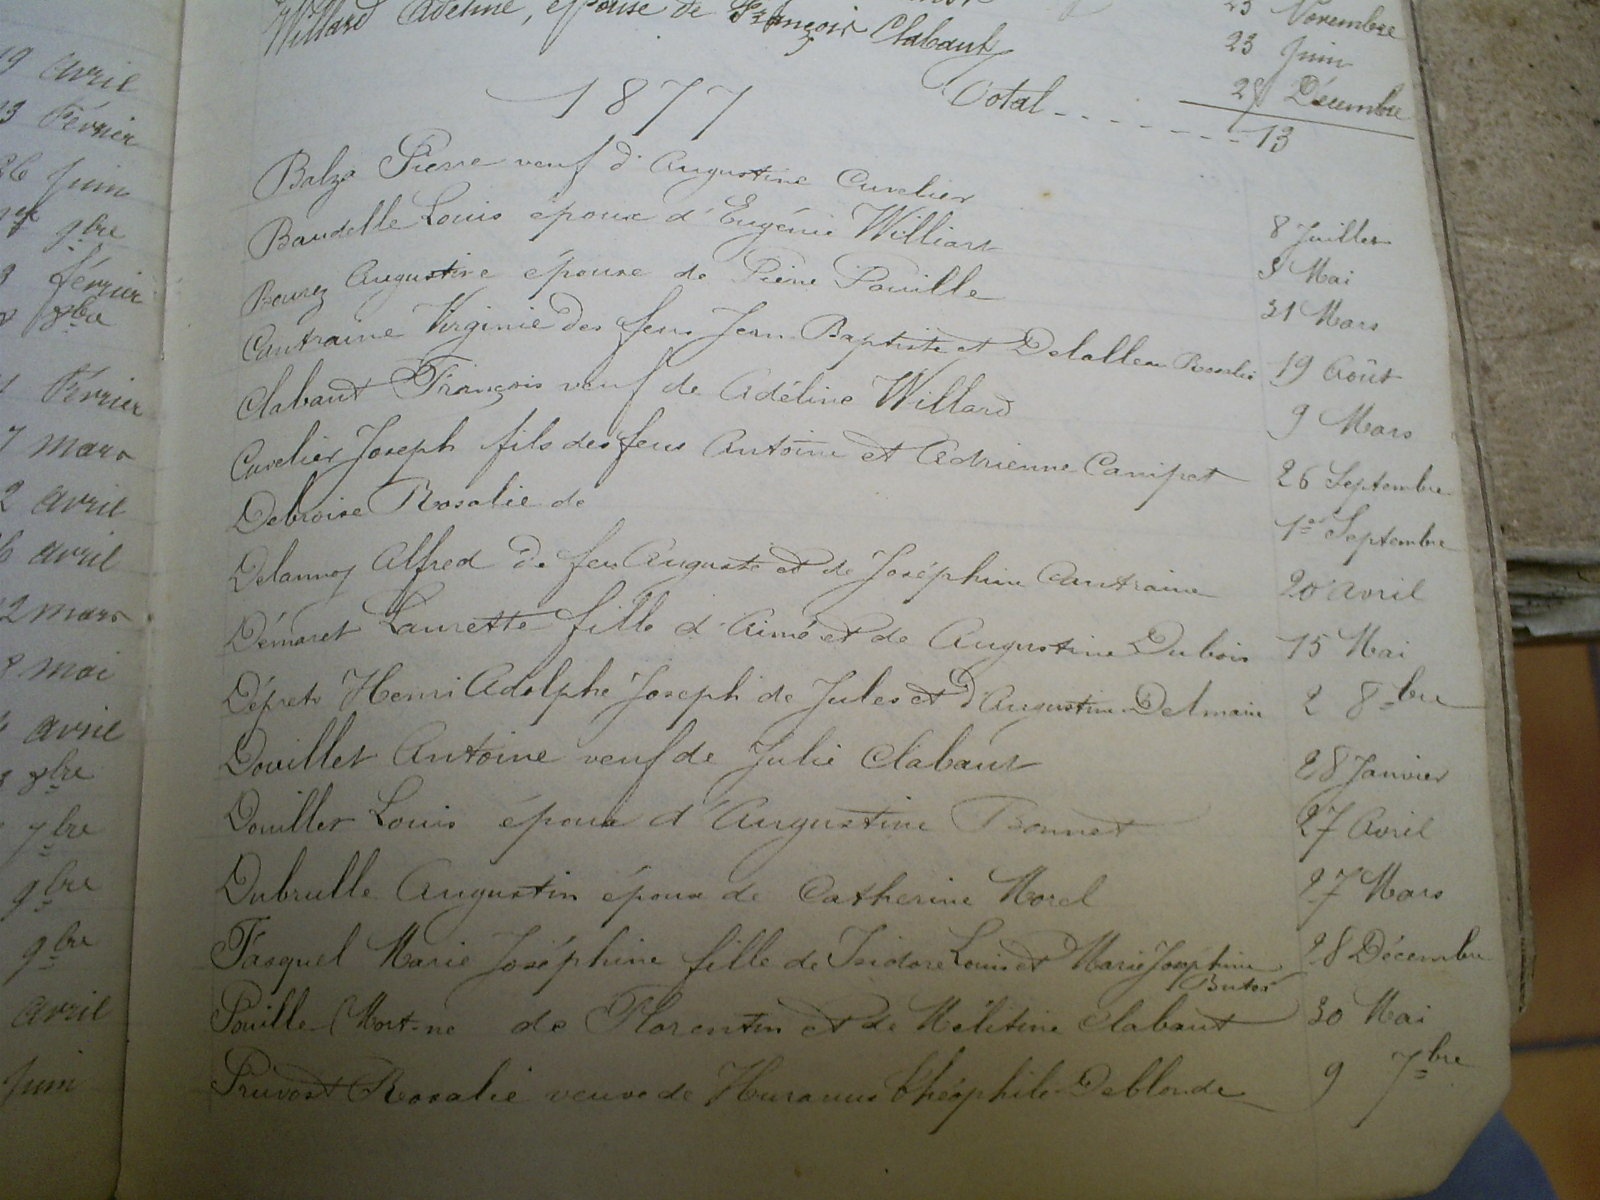 19 avril
13 Février
26 Juin
9bre
3 février
8bre
Février
7 mars
2 avril
6 avril
12 mars
mai
avril
8bre
7bre
9bre
9bre
avril
Juin
23 Novembre
Willard Adeline, épouse de François Clabaut 23 Juin
28 Décembre
1877 Total - - - - - - - 13
Balza Pierre veuf d'Augustine Cuvelier 8 Juillet
Baudelle Louis époux d'Eugénie Williart 3 Mai
Bourez Augustine épouse de Pierre Pouille 31 Mars
Cantraine Virginie des feus Jean Baptiste et Delalleau Rosalie 19 Août
Clabaut François veuf de Adéline Willard 9 Mars
Cuvelier Joseph fils des feus Antoine et Adrienne Canipet 26 Septembre
Debroise Rosalie de 1er Septembre
Delannoy Alfred de feu Auguste et de Joséphine Cantraine 20 avril
Démaret Laurette fille d'Aimé et de Augustine Dubois 15 Mai
Déprets Henri Adolphe Joseph de Jules et d'Augustine Delmair 2 8bre
Douillet Antoine veuf de Julie Clabaut 28 Janvier
Douillet Louis époux d'Augustine Bonnet 27 Avril
Dubrulle Augustin époux de Catherine Morel 27 Mars
Fasquel Marie Joséphine fille de Isidore Louis et Marie Joséphine 28 Décembre
Pouille Mort-né de Florentin et de Mélitine Clabaut 30 Mai
Pruvost Rosalie veuve de Théophile Deblonde 9 7bre